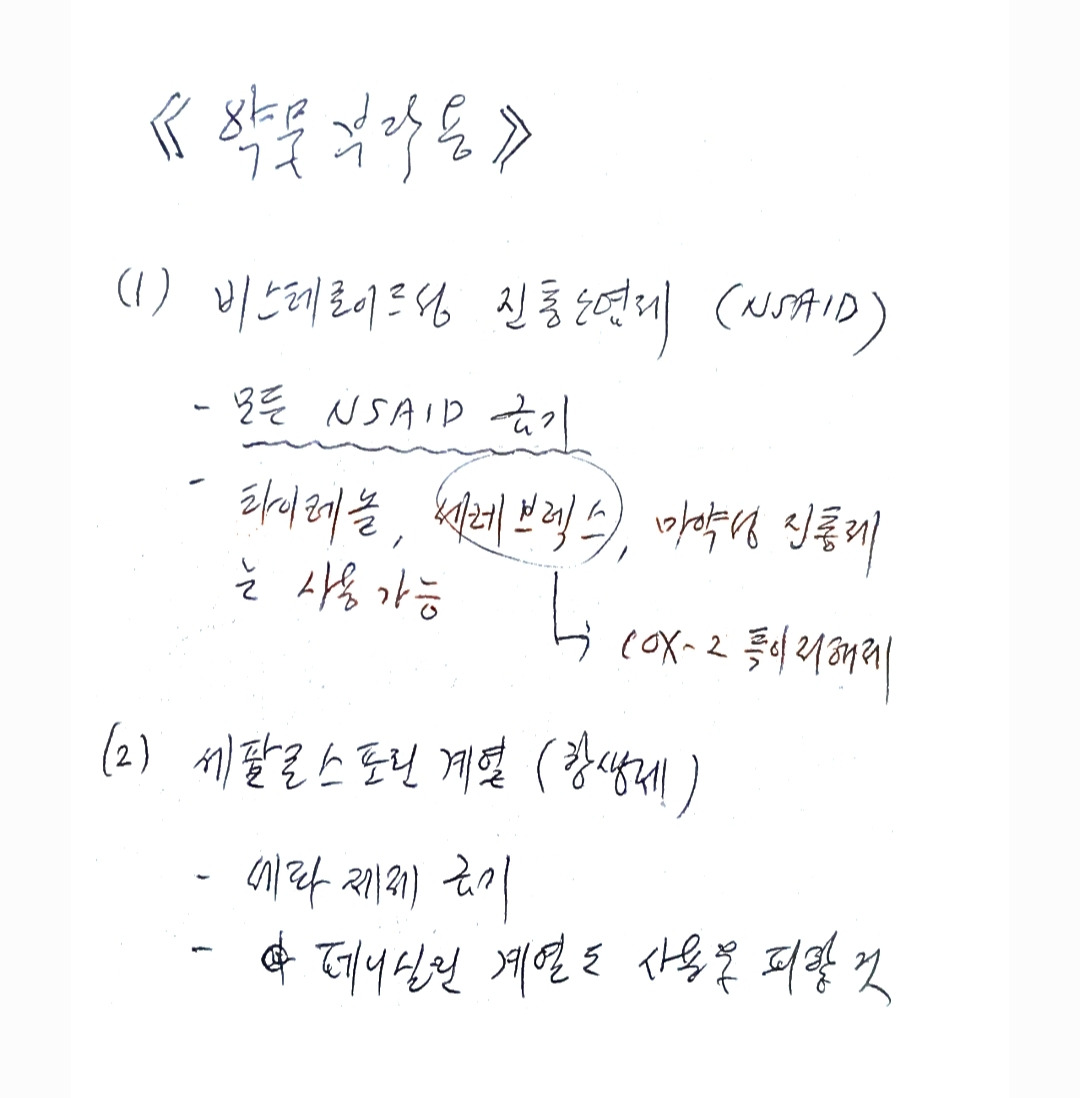 《 약물 부작용 》
(1) 비스테로이드성 진통소염제 (NSAID)
- 모든 NSAID 금기
- 타이레놀, 세레브렉스, 마약성 진통제
는 사용 가능
↳ COX-2 특이 저해제
(2) 세팔로스포린 계열 (항생제)
- 세파 제제 금기
- 페니실린 계열도 사용을 피할 것